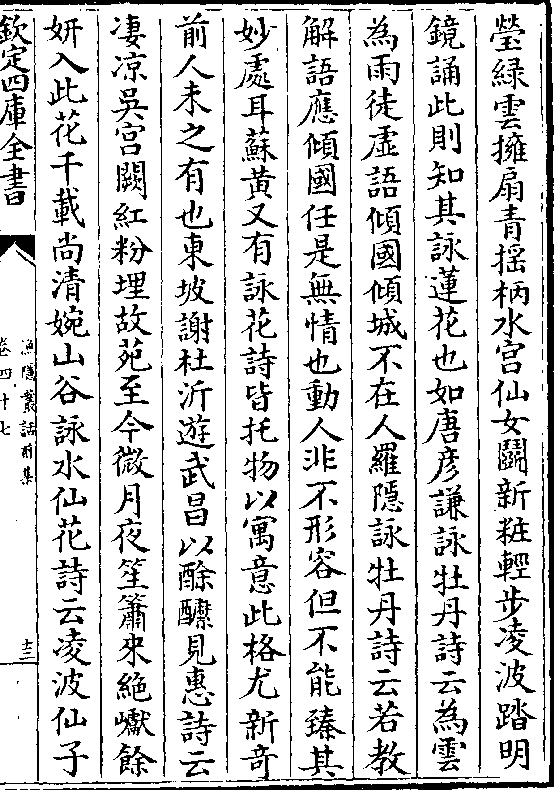 瑩緑雲擁扇青揺柄水宫仙女鬭新粧輕步凌波踏明
鏡誦此則知其詠蓮花也如唐彦謙詠牡丹詩云為雲
為雨徒虛語傾國傾城不在人羅隱詠牡丹詩云若教
解語應傾國任是無情也動人非不形容但不能臻其
妙處耳蘇黃又有詠花詩皆托物以寓意此格尤新竒
前人未之有也東坡謝杜沂遊武昌以酴醿見惠詩云
凄凉吳宫闕紅粉埋故苑至今微月夜笙簫來絶巘餘
妍入此花千載尚清婉山谷詠水仙花詩云凌波仙子
欽定四庫全書
漁隱叢話前集
卷四十七
十三